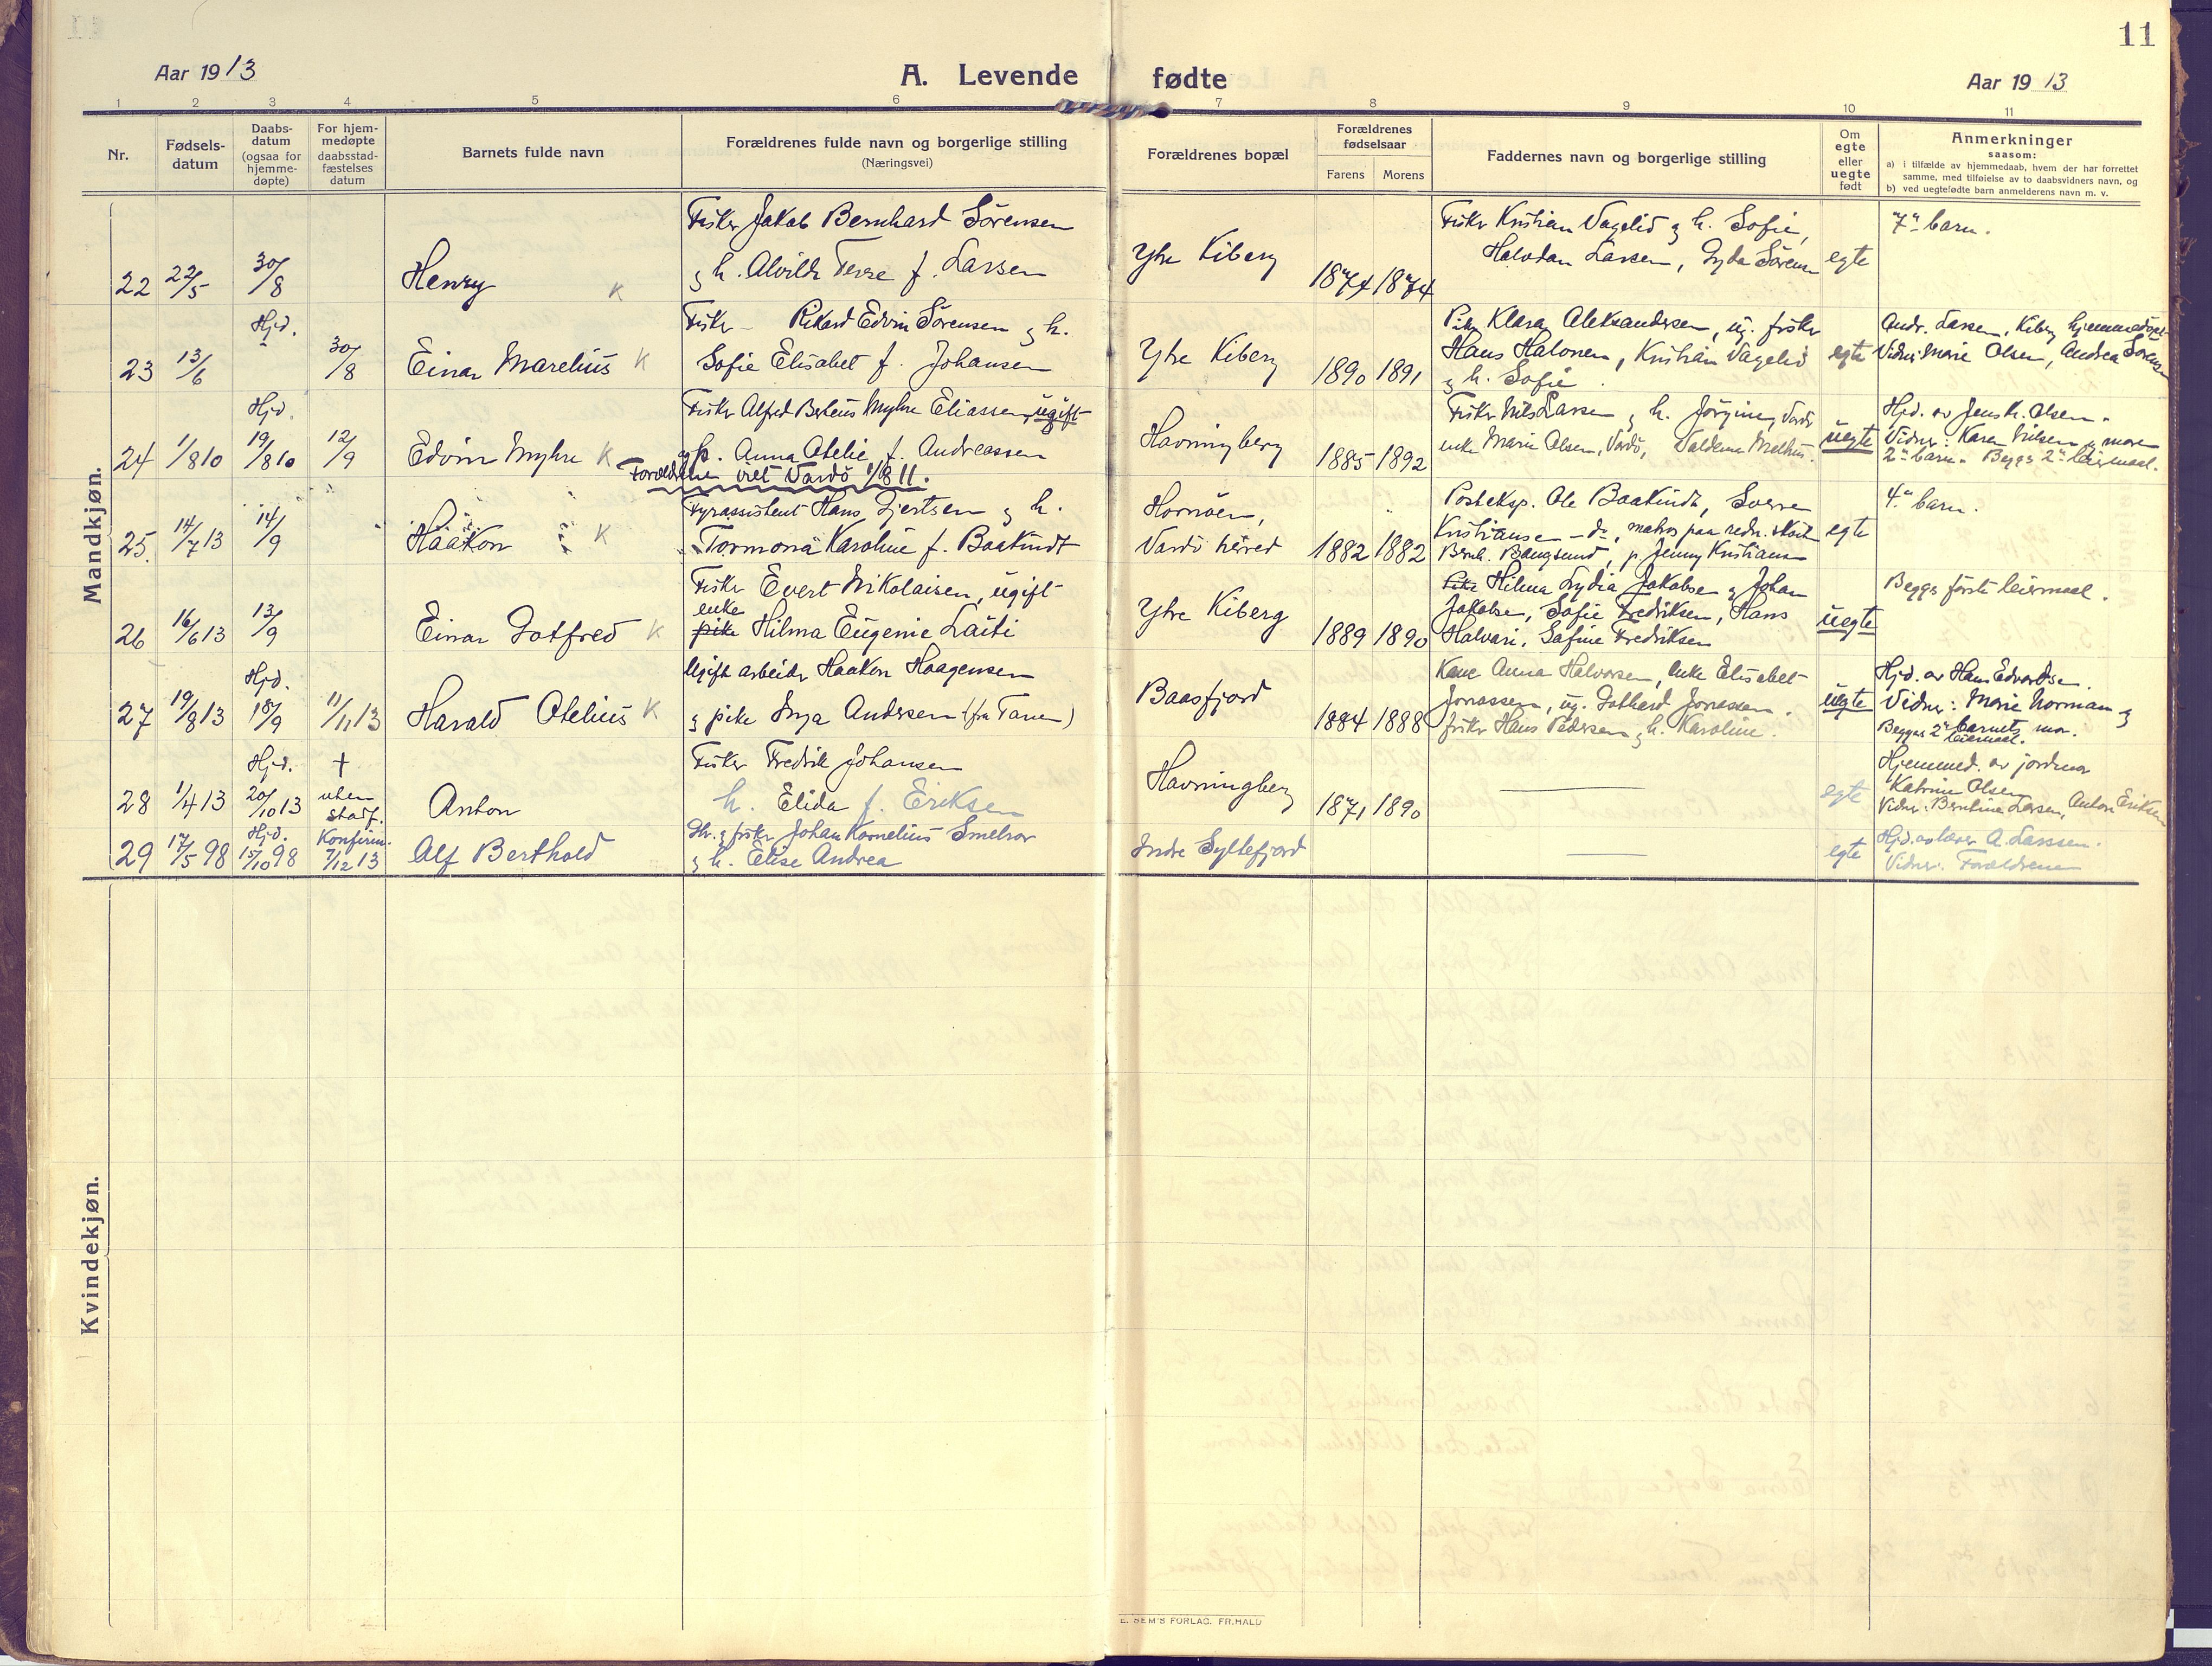 11
Aar 1913
A. Levende fødte
Aar 1913
1 2 3 4 5 6 7 8 9 10 11
Nr.
Fødsels-
datum
Daabs-
datum
(ogsaa for
hjemme-
døpte)
For hjem-
medøpte
daabsstad-
fæstelses
datum
Barnets fulde navn
Forældrenes fulde navn og borgerlige stilling
(Næringsvei)
Forældrenes bopæl
Forældrenes
fødselsaar
Farens
Morens
Faddernes navn og borgerlige stilling
Om
egte
eller
uegte
født
Anmerkninger
saasom:
a) i tilfælde av hjemmedaab, hvem der har forrettet
samme, med tilføielse av to daabsvidners navn, og
b) ved uegtefødte barn anmelderens navn m. v.
Mandkjøn.
22 22/5 30/8 Henry K
Fisker Jakob Bernhard Sörensen
g h. Alvilde f. Larsen
Ytre Kiberg 1874 1874
Fisker Kristian Vagelid g h. Sofie,
Halvdan Larsen, Gyda Sörensen
egte
7de barn.
23 13/6 Hjd. 30/8 Einar Marelius K
Fisker Rikard Edvin Sörensen g h.
Sofie Elisabet f. Johansen
Ytre Kiberg 1890 1891
Pike Klara Aleksandersen, ug. fisker
Hans Halonen, Kristian Vagelid
g h. Sofie
egte
Andr. Larsen, Kiberg hjemmedöpt
Vidner: Marie Olsen, Andrea Sörensen
24 1/8 10 Hjd. 19/8 10 12/9 Edvin Myhre K
Fisker Alfred Berteus Myhre Eliassen, ugift
g p. Anna Otelie f. Andreassen
Forældrene viet Vardö 1/8 11.
Havningberg 1885 1892
Fisker Nils Larsen g h. Jörgine, Vardö
enke Marie Olsen, Vardö, Valdemar
uegte
Hjd. av Jens K. Olsen.
Vidner: Karen Nilsen g moren
2det barn. Begges 2det leiermaal.
25. 14/7 13 14/9 Haakon K
Fyrassistent Hans Gjertsen g h.
Tormona Karoline f. Baakindt
Hornöen,
Vardö herred 1882 1882
Posteksp. Ole Baakindt, Sverre
Kristiansen – do, matros paa redn. skoit
Bernh. Bangsund, p. Jenny Kristiansen
egte
4de barn.
26 16/6 13 13/9 Einar Gotfred K
Fisker Evert Nikolaisen, ugift
enke
pike Hilma Eugenie Laiti
Ytre Kiberg 1889 1890
Pike Hilma Lydia Jakobsen g Johan
Jakobsen, Sofie Fredriksen, Hans
Halvari, Safine Fredriksen
uegte
Begges förste leiermaal.
27 19/8 13 Hjd. 18/9 11/11 13 Harald Otelius K
Ugift arbeider Haakon Haagensen
g pike Inga Andersen (fra Tanen)
Baasfjord 1884 1888
Kone Anna Halvorsen, enke Elisabet
Jonassen, ug. Gothard Jonassen.
fisker Hans Pedersen g h. Karoline.
uegte
Hjd. av Hans Edvardsen.
Vidner: Marie Norman g
barnets mor.
Begges 2det leiermaal.
28 1/4 13 Hjd. 20/10 13 † uten stadf. Anton
Fisker Fredrik Johansen
h. Elida f. Eriksen
Havningberg 1871 1890
egte
Hjemmed. av jordmor
Katrine Olsen
Vidner: Berntine Larsen, Anton Eriksen
29 17/5 98 Hjd. 15/10 98 Konfirm. 7/12 13 Alf Berthold
Gbr. g fisker Johan Kornelius Smelror
g h. Elise Andrea
Indre Syltefjord
egte
Hjd. av lærer A. Larssen.
Vidner: Forældrene
Kvindekjøn.
E. SEM'S FORLAG. FR.HALD